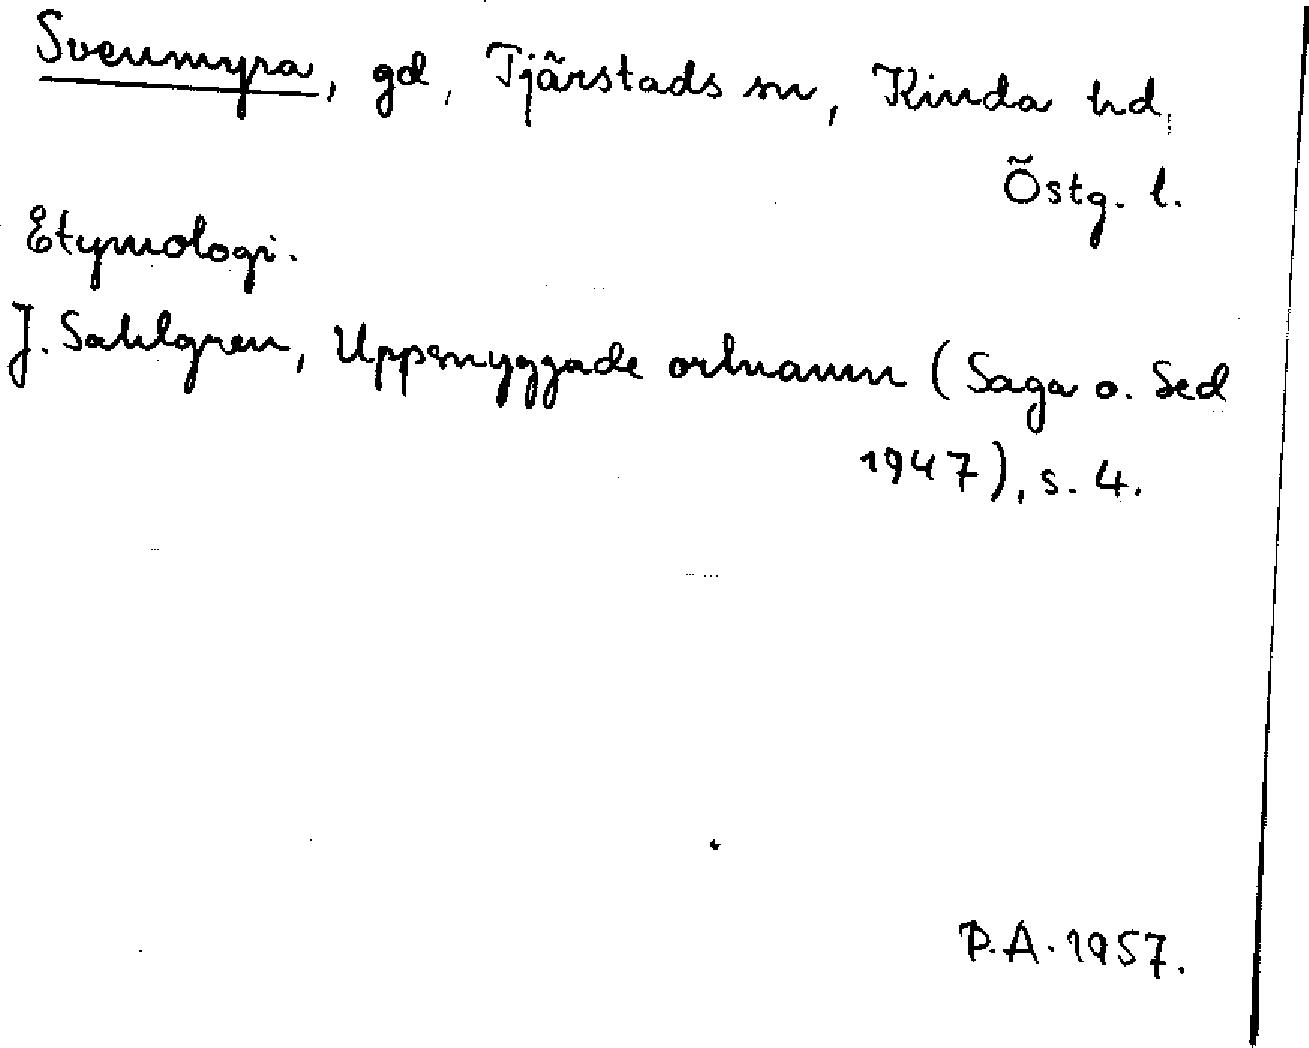 Svenmyra, gd, Tjärstads sn, Kinda hd,
Östg. l.
Etymologi.
J. Sahlgren, Uppsnyggade ortnamn (Saga o. Sed
1947), s. 4.
P.A. 1957.